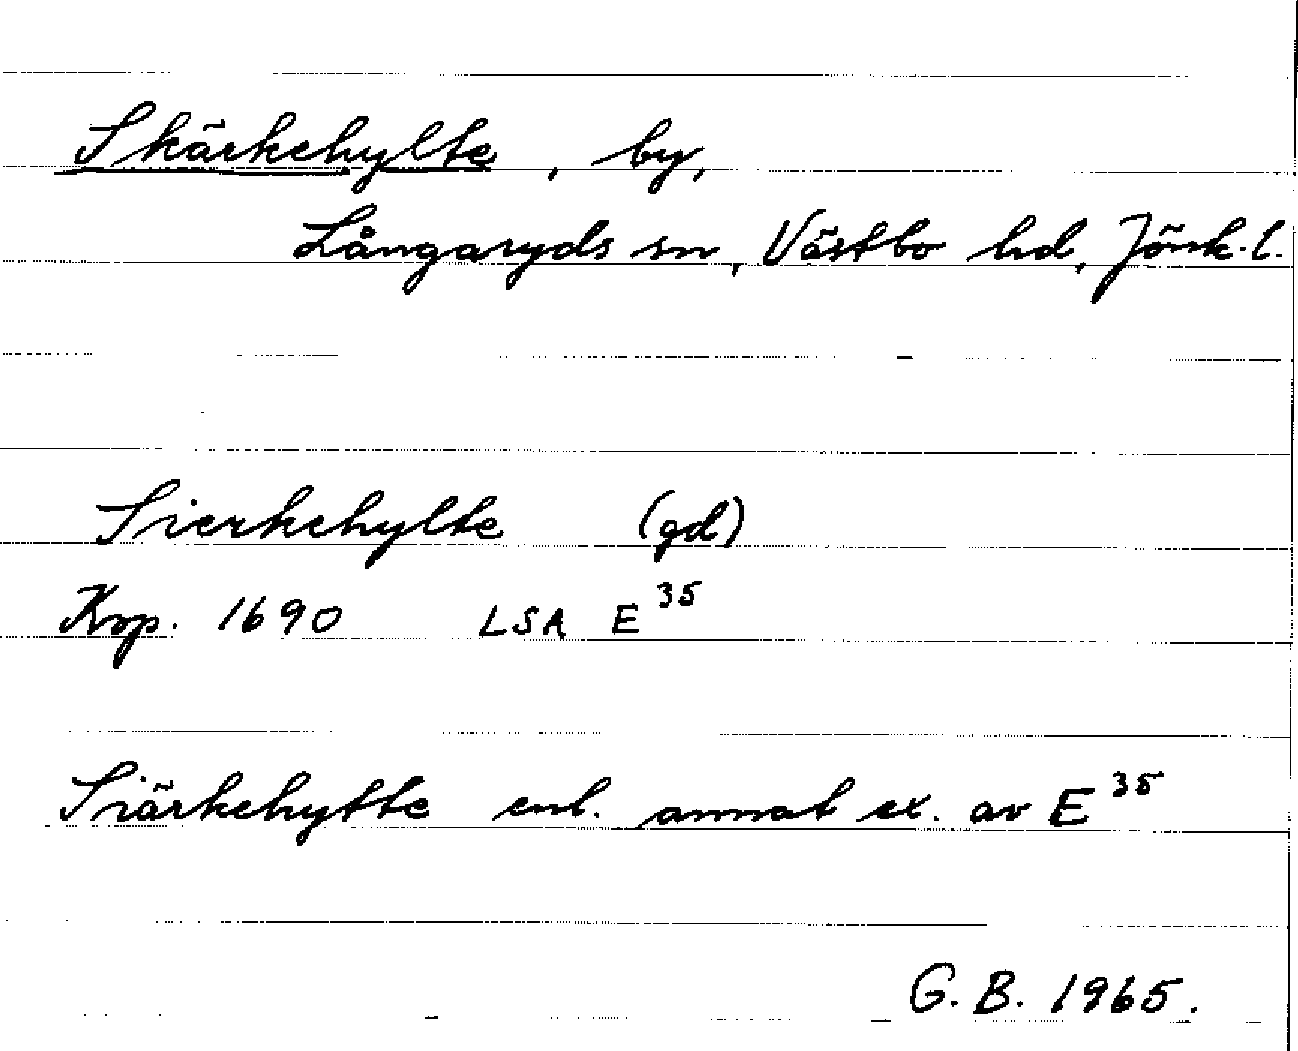 Skärkehylte, by,
Långaryds sn, Västbo hd, Jönk. l.
Sierkehylte (gd)
Krp. 1690 LSA E 35
Siärkehytte enl. annat ex. av E 35
G. B. 1965.